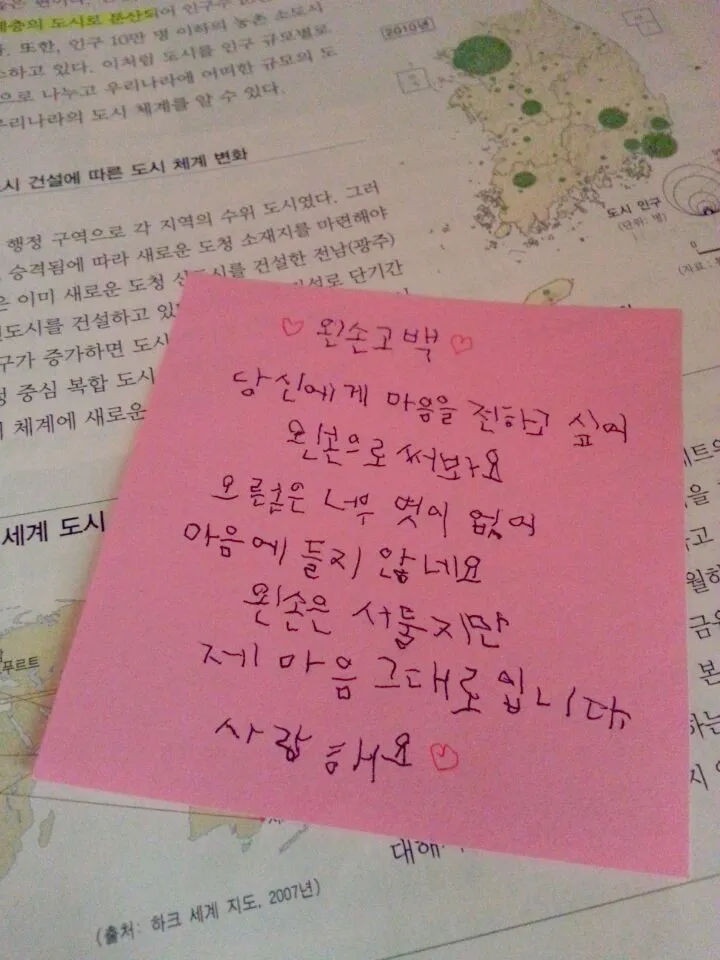 계층의 도시로 분산되어 인구수
또한, 인구 10만 명 이하의 농촌 소도시
하고 있다. 이처럼 도시를 인구 규모별로
으로 나누고 우리나라에 어떠한 규모의 도
우리나라의 도시 체계를 알 수 있다.
2010년
도시 인구
(단위: 명)
0
(자료:
시 건설에 따른 도시 체계 변화
행정 구역으로 각 지역의 수위 도시였다. 그러
승격됨에 따라 새로운 도청 소재지를 마련해야
은 이미 새로운 도청 신도시를 건설한 전남(광주)
신도시를 건설하고 있 로 단기간
구가 증가하면 도시
정 중심 복합 도시
체계에 새로운
♡ 왼손고백 ♡
당신에게 마음을 전하고 싶어
왼손으로 써봐요
오른손은 너무 멋이 없어
마음에 들지 않네요
왼손은 서툴지만
제 마음 그대로입니다
사랑해요 ♡
세계 도시
푸르트
대해
(출처: 하크 세계 지도, 2007년)